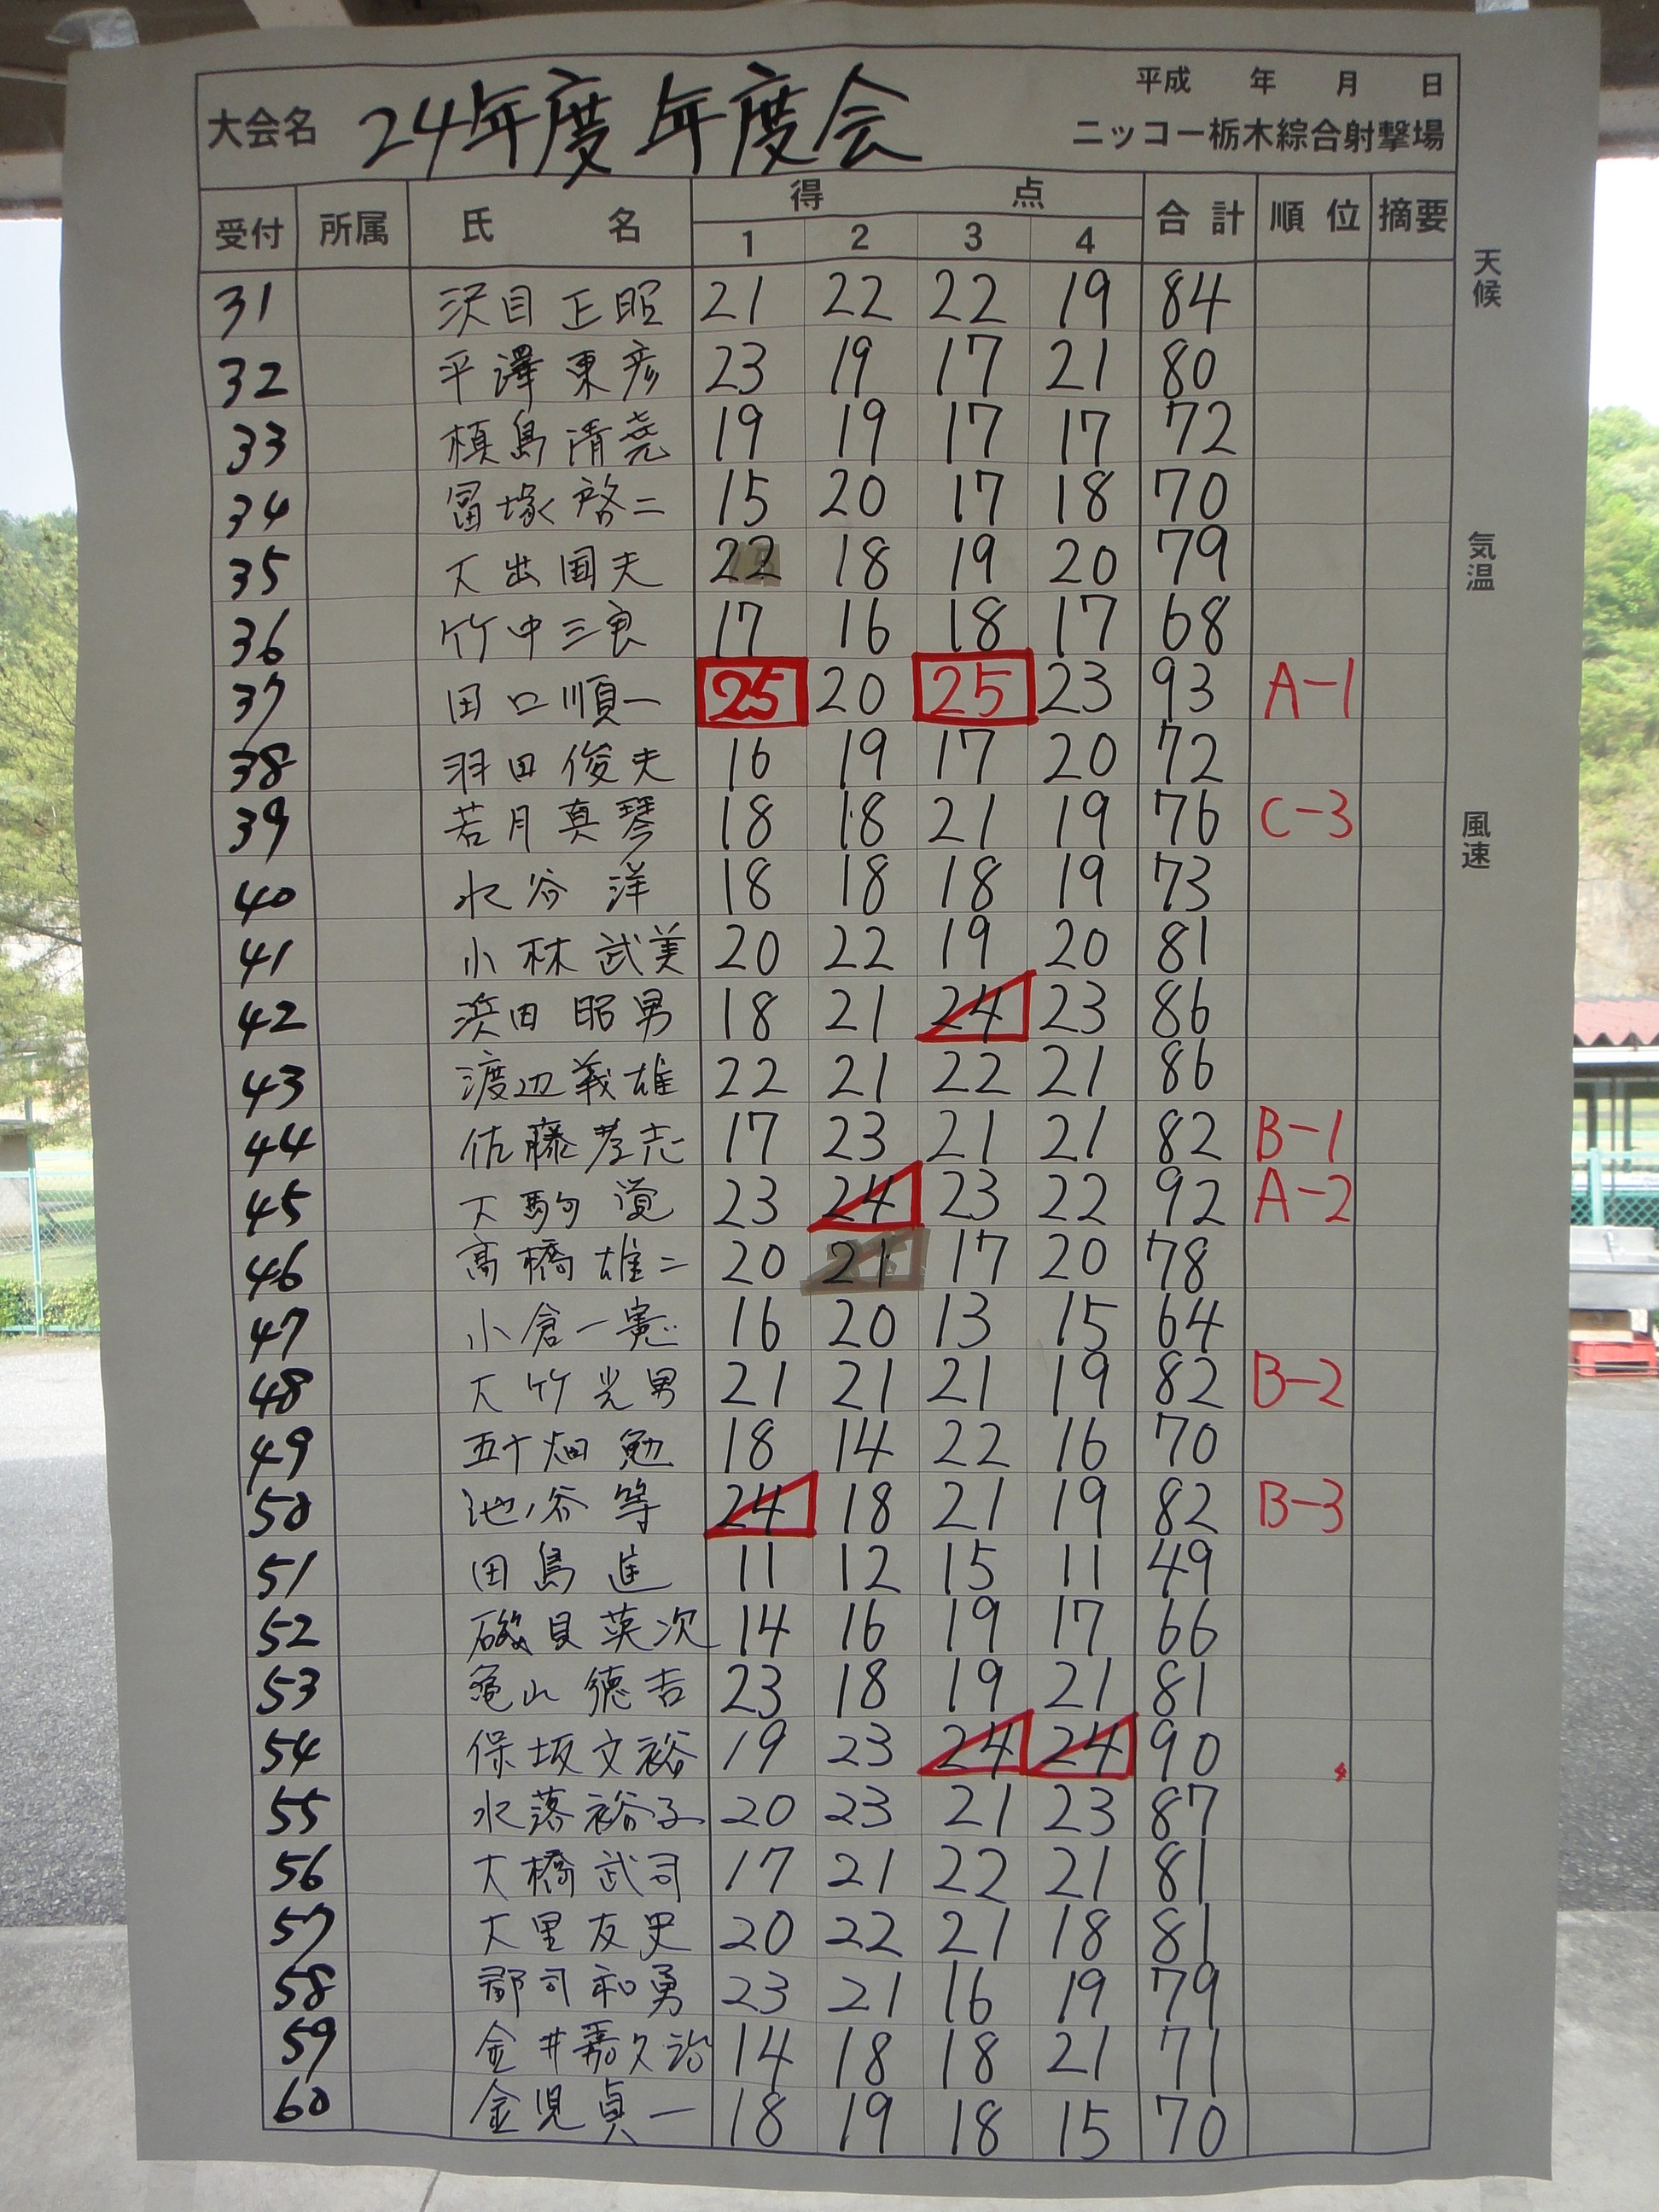 平成 年 月 日
大会名 24年度 年度会 ニッコー栃木綜合射撃場
受付 所属 氏名 得点 合計 順位 摘要
1 2 3 4
31 沢目正昭 21 22 22 19 84
32 平澤東彦 23 19 17 21 80
33 槙島清尭 19 19 17 17 72
34 冨塚啓二 15 20 17 18 70
35 大出国夫 22 18 19 20 79
36 竹中三良 17 16 18 17 68
37 田口順一 25 20 25 23 93 A-1
38 羽田俊夫 16 19 17 20 72
39 若月真琴 18 18 21 19 76 C-3
40 水谷洋 18 18 18 19 73
41 小林武美 20 22 19 20 81
42 浜田昭男 18 21 24 23 86
43 渡辺義雄 22 21 22 21 86
44 佐藤孝志 17 23 21 21 82 B-1
45 大駒覚 23 24 23 22 92 A-2
46 高橋雄二 20 21 17 20 78
47 小倉一憲 16 20 13 15 64
48 大竹光男 21 21 21 19 82 B-2
49 五十畑勉 18 14 22 16 70
50 池ノ谷等 24 18 21 19 82 B-3
51 田島進 11 12 15 11 49
52 磯貝英次 14 16 19 17 66
53 亀山徳吉 23 18 19 21 81
54 保坂文裕 19 23 24 24 90
55 水落裕子 20 23 21 23 87
56 大橋武司 17 21 22 21 81
57 大里友史 20 22 21 18 81
58 郡司和勇 23 21 16 19 79
59 金井嘉久治 14 18 18 21 71
60 金児貞一 18 19 18 15 70
天候
気温
風速